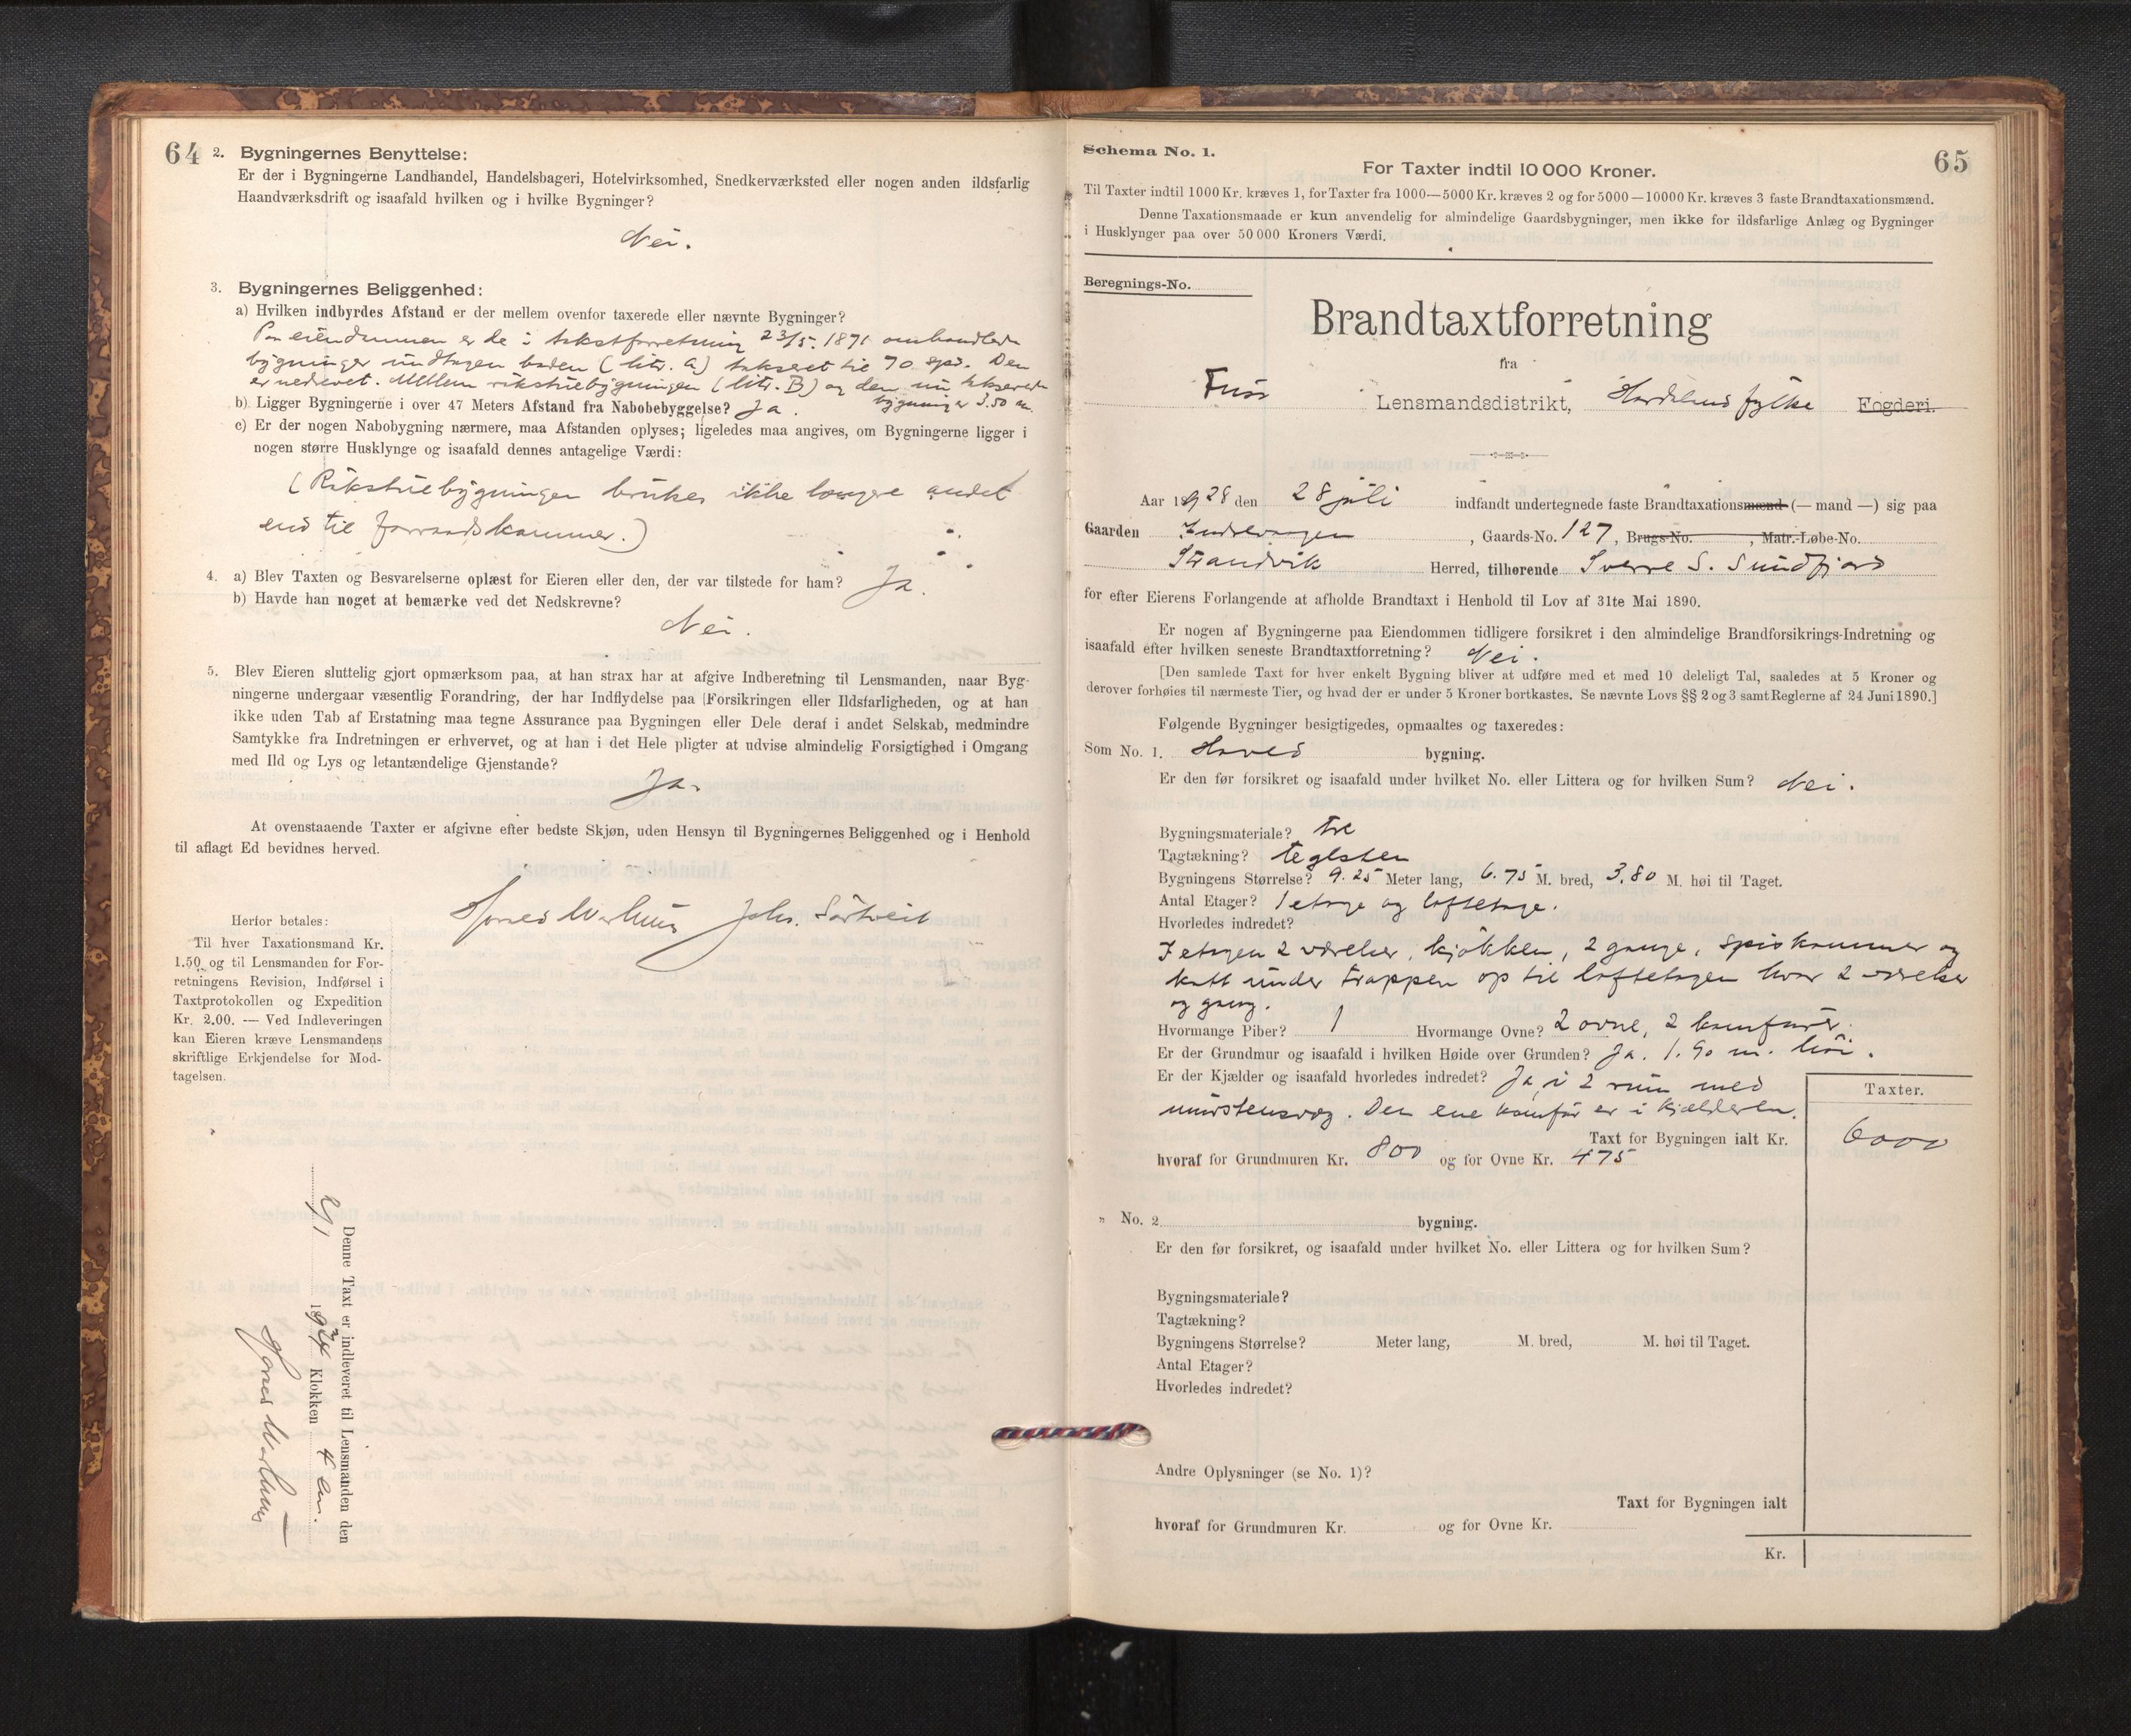 64
2. Bygningernes Benyttelse:
Er der i Bygningerne Landhandel, Handelsbageri, Hotelvirksomhed, Snedkerværksted eller nogen anden ildsfarlig
Haandværksdrift og isaafald hvilken og i hvilke Bygninger?
Nei.
3. Bygningernes Beliggenhed:
a) Hvilken indbyrdes Afstand er der mellem ovenfor taxerede eller nævnte Bygninger?
Paa eiendommen er de i takstforretning 23/5. 1871 omhandlede
bygninger undtagen boden (litr. a) takseret til 70 spd. Den
er nedrevet. Mellem røkstuebygningen (litr. B) og den nu takserede
bygning er 3.50 m.
b) Ligger Bygningerne i over 47 Meters Afstand fra Nabobebyggelse? Ja.
c) Er der nogen Nabobygning nærmere, maa Afstanden oplyses; ligeledes maa angives, om Bygningerne ligger i
nogen større Husklynge og isaafald dennes antagelige Værdi:
(Røkstuebygningen brukes ikke longere andet
end til forraadskammer.)
4. a) Blev Taxten og Besvarelserne oplæst for Eieren eller den, der var tilstede for ham? Ja.
b) Havde han noget at bemærke ved det Nedskrevne?
Nei.
5. Blev Eieren sluttelig gjort opmærksom paa, at han strax har at afgive Indberetning til Lensmanden, naar Byg-
ningerne undergaar væsentlig Forandring, der har Indflydelse paa Forsikringen eller Ildsfarligheden, og at han
ikke uden Tab af Erstatning maa tegne Assurance paa Bygningen eller Dele deraf i andet Selskab, medmindre
Samtykke fra Indretningen er erhvervet, og at han i det Hele pligter at udvise almindelig Forsigtighed i Omgang
med Ild og Lys og letantændelige Gjenstande?
Ja.
At ovenstaaende Taxter er afgivne efter bedste Skjøn, uden Hensyn til Bygningernes Beliggenhed og i Henhold
til aflagt Ed bevidnes herved.
Joh. Sørtveit
Herfor betales:
Til hver Taxationsmand Kr.
1.50 og til Lensmanden for For-
retningens Revision, Indførsel i
Taxtprotokollen og Expedition
Kr. 2.00. — Ved Indleveringen
kan Eieren kræve Lensmandens
skriftlige Erkjendelse for Mod-
tagelsen.
Denne Taxt er indleveret til Lensmanden den
Klokken 4 em.
65
Schema No. 1.
For Taxter indtil 10 000 Kroner.
Til Taxter indtil 1000 Kr. kræves 1, for Taxter fra 1000—5000 Kr. kræves 2 og for 5000—10000 Kr. kræves 3 faste Brandtaxationsmænd.
Denne Taxationsmaade er kun anvendelig for almindelige Gaardsbygninger, men ikke for ildsfarlige Anlæg og Bygninger
i Husklynger paa over 50 000 Kroners Værdi.
Beregnings-No.
Brandtaxtforretning
fra
Fusa Lensmandsdistrikt, Hordaland fylke Fogderi.
Aar 1928 den 28 juli indfandt undertegnede faste Brandtaxationsmænd (— mand —) sig paa
Gaarden Indrevaagen, Gaards-No. 127, Brugs-No. , Matr.-Løbe-No.
Strandvik Herred, tilhørende Sverre S. Sundfjord
for efter Eierens Forlangende at afholde Brandtaxt i Henhold til Lov af 31te Mai 1890.
Er nogen af Bygningerne paa Eiendommen tidligere forsikret i den almindelige Brandforsikrings-Indretning og
isaafald efter hvilken seneste Brandtaxtforretning? Nei.
[Den samlede Taxt for hver enkelt Bygning bliver at udføre med et med 10 deleligt Tal, saaledes at 5 Kroner og
derover forhøies til nærmeste Tier, og hvad der er under 5 Kroner bortkastes. Se nævnte Lovs §§ 2 og 3 samt Reglerne af 24 Juni 1890.]
Følgende Bygninger besigtigedes, opmaaltes og taxeredes:
Som No. 1. Hoved bygning.
Er den før forsikret og isaafald under hvilket No. eller Littera og for hvilken Sum? Nei.
Bygningsmateriale? tre
Tagtækning? teglsten
Bygningens Størrelse? 9.25 Meter lang, 6.75 M. bred, 3.80 M. høi til Taget.
Antal Etager? 1 etage og loftetage.
Hvorledes indredet?
I etagen 2 værelser, kjøkken, 2 gange, spiskammer og
kott under trappen op til loftetagen hvor 2 værelser
og gang.
Hvormange Piber? 1 Hvormange Ovne? 2 ovne, 2 komfurer.
Er der Grundmur og isaafald i hvilken Høide over Grunden? Ja. 1.90 m. høi.
Er der Kjælder og isaafald hvorledes indredet? Ja, i 2 rum med
murstensvæg. Den ene komfur er i kjælderen.
Taxter.
Taxt for Bygningen ialt Kr. 6000
hvoraf for Grundmuren Kr. 800 og for Ovne Kr. 475
" No. 2 bygning.
Er den før forsikret, og isaafald under hvilket No. eller Littera og for hvilken Sum?
Bygningsmateriale?
Tagtækning?
Bygningens Størrelse? Meter lang, M. bred, M. høi til Taget.
Antal Etager?
Hvorledes indredet?
Andre Oplysninger (se No. 1)?
Taxt for Bygningen ialt
hvoraf for Grundmuren Kr. og for Ovne Kr.
Kr.